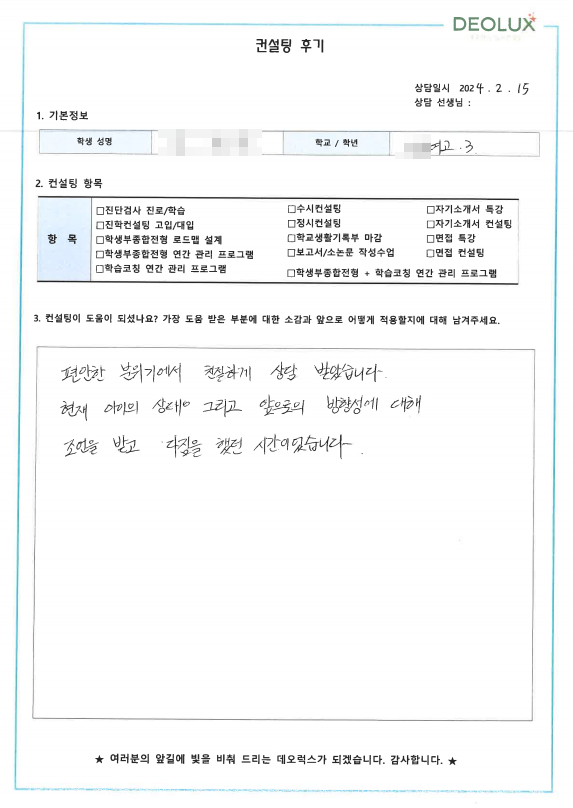 DEOLUX
컨설팅 후기
상담일시 2024. 2. 15
상담 선생님 :
1. 기본정보
학생 성명 학교 / 학년 여고. 3
2. 컨설팅 항목
항 목
□진단검사 진로/학습 □수시컨설팅 □자기소개서 특강
□진학컨설팅 고입/대입 □정시컨설팅 □자기소개서 컨설팅
□학생부종합전형 로드맵 설계 □학교생활기록부 마감 □면접 특강
□학생부종합전형 연간 관리 프로그램 □보고서/소논문 작성수업 □면접 컨설팅
□학습코칭 연간 관리 프로그램 □학생부종합전형 + 학습코칭 연간 관리 프로그램
3. 컨설팅이 도움이 되셨나요? 가장 도움 받은 부분에 대한 소감과 앞으로 어떻게 적용할지에 대해 남겨주세요.
편안한 분위기에서 친절하게 상담 받았습니다.
현재 아이의 상태와 그리고 앞으로의 방향성에 대해
조언을 받고 다짐을 했던 시간이었습니다.
★ 여러분의 앞길에 빛을 비춰 드리는 데오럭스가 되겠습니다. 감사합니다. ★